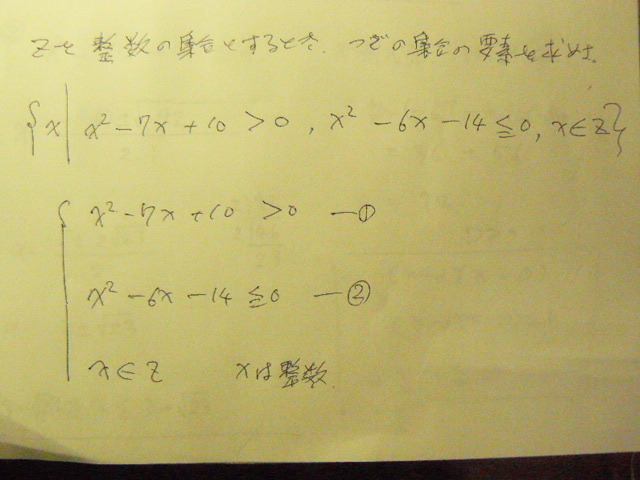 Zを整数の集合とするとき、つぎの集合の要素を求めよ。
{x | x² - 7x + 10 > 0, x² - 6x - 14 ≦ 0, x ∈ Z}
x² - 7x + 10 > 0 ― ①
x² - 6x - 14 ≦ 0 ― ②
x ∈ Z xは整数.